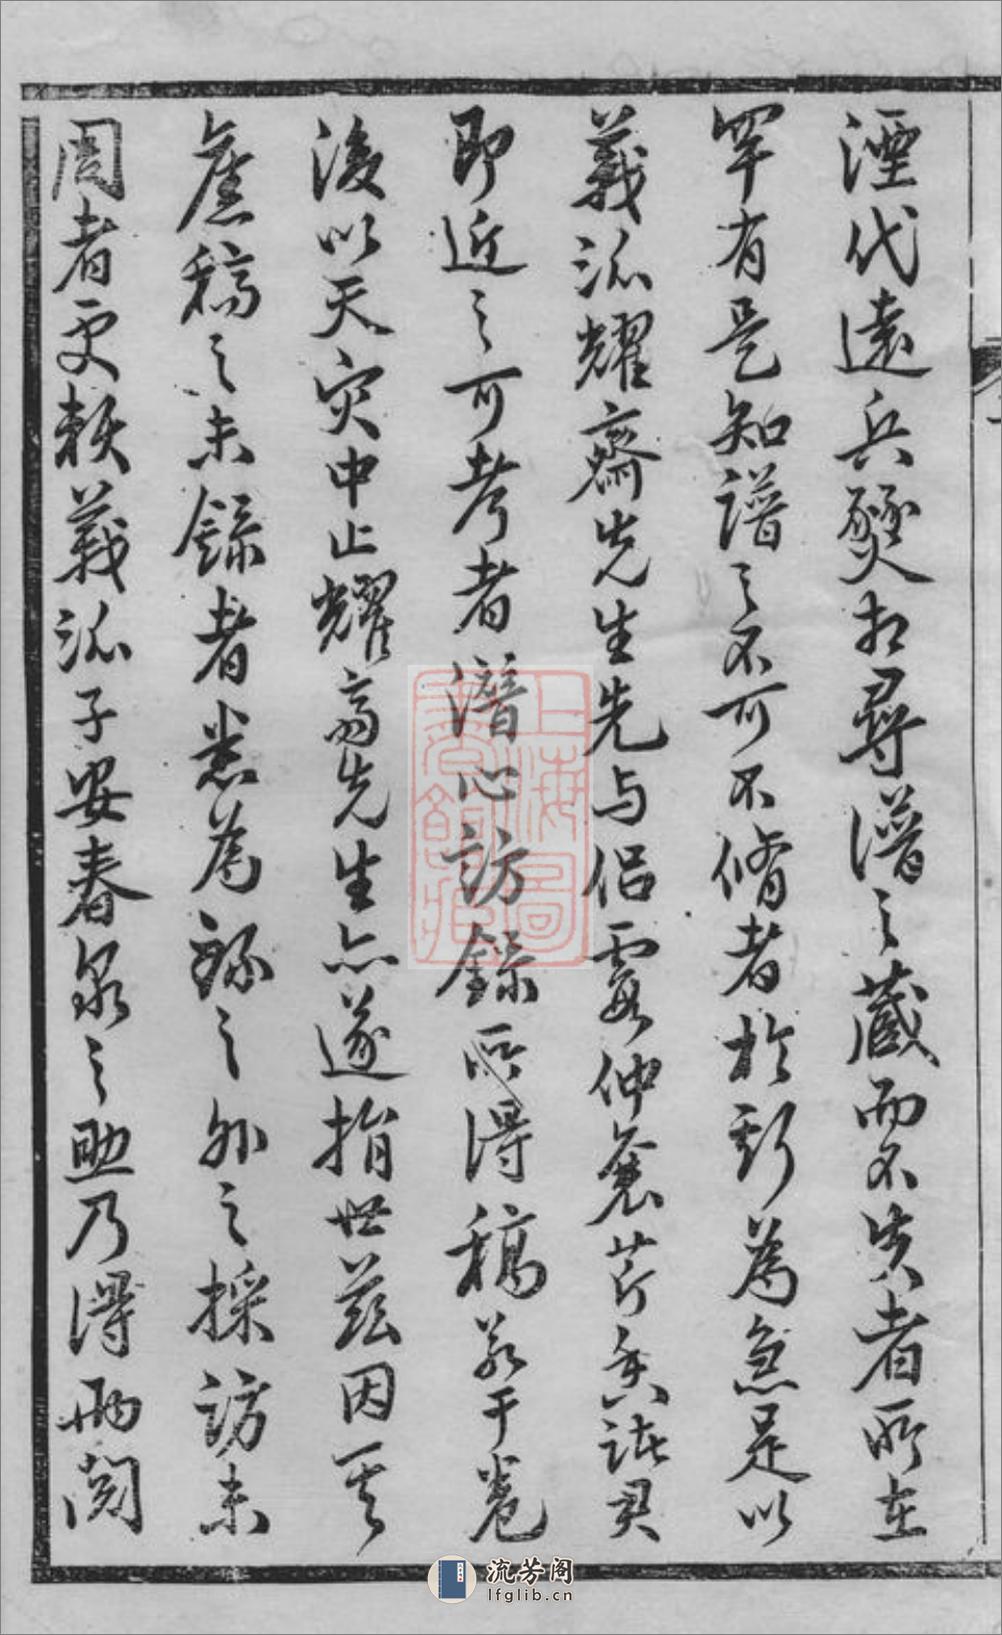 湮代遠兵燹相尋譜之藏而不失者所在
罕有是知譜之不可不脩者於斯為急是以
義派耀齋先生先与侶霞仲襄芹香諸君
即近之可考者潛心訪錄所得稿若干卷
後以天灾中止耀斋先生亦遂捐世茲因其
舊稿之未錄者悉為錄之外之採訪未
周者更賴義派子安春泉之助乃得两閱
上海圖書館藏
流芳阁
lfglib.cn